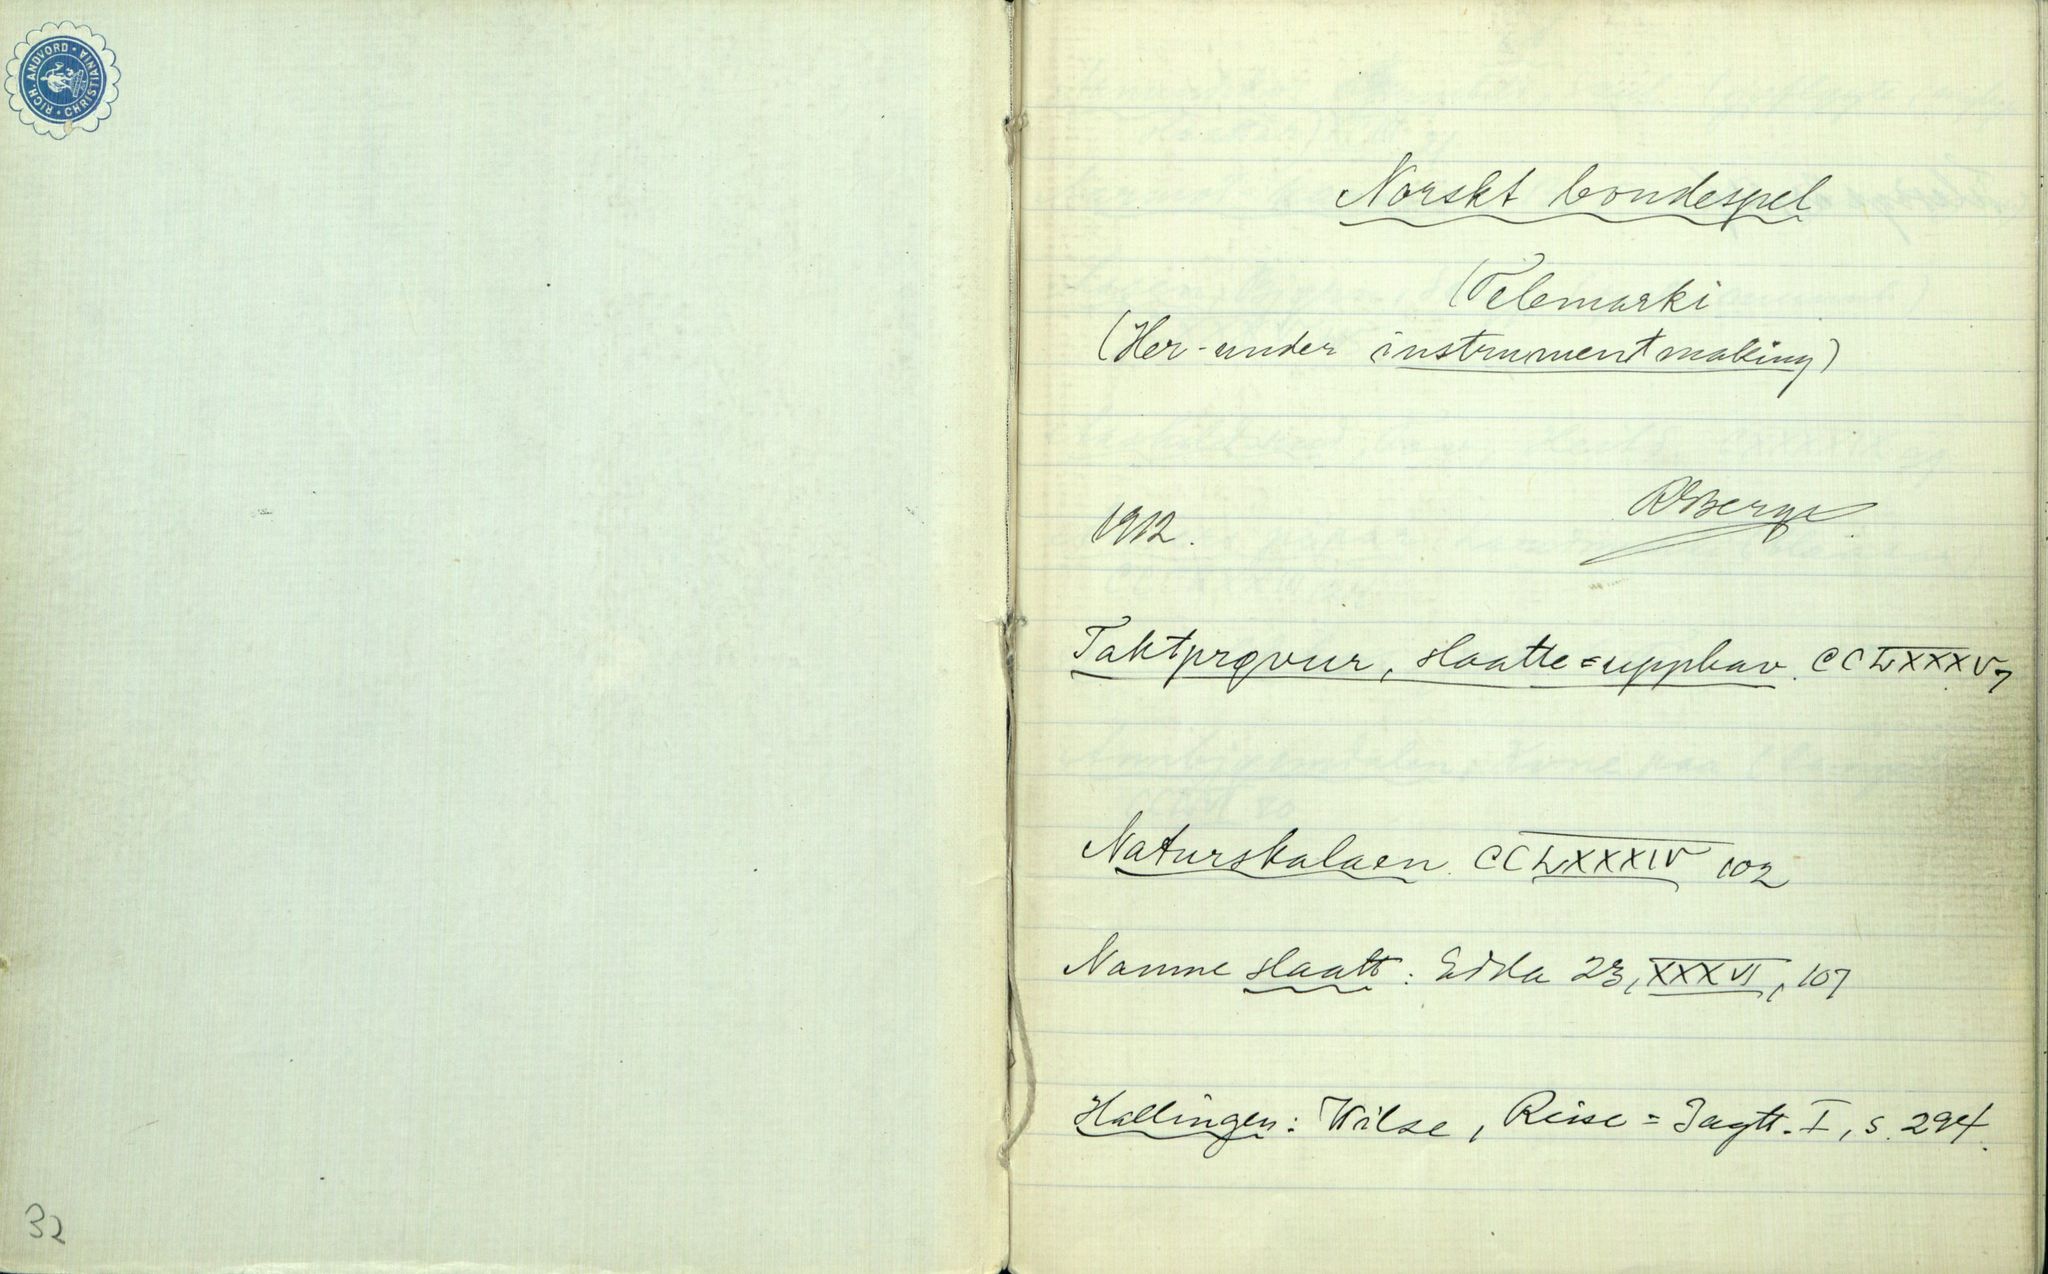 RICH. ANDVORD · CHRISTIANIA
32
Norskt bondespel
(Telemarki
(Her-under instrumentmaking)
RBerge
1912.
Taktprøvur, slaatte=upphav. CCLXXXV, 7
Naturskalaen. CCLXXXIV 102
Namne slaatt: Edda 23, XXXVI, 107
Hallingen: Wilse, Reise=Iagtt. I, s. 294.